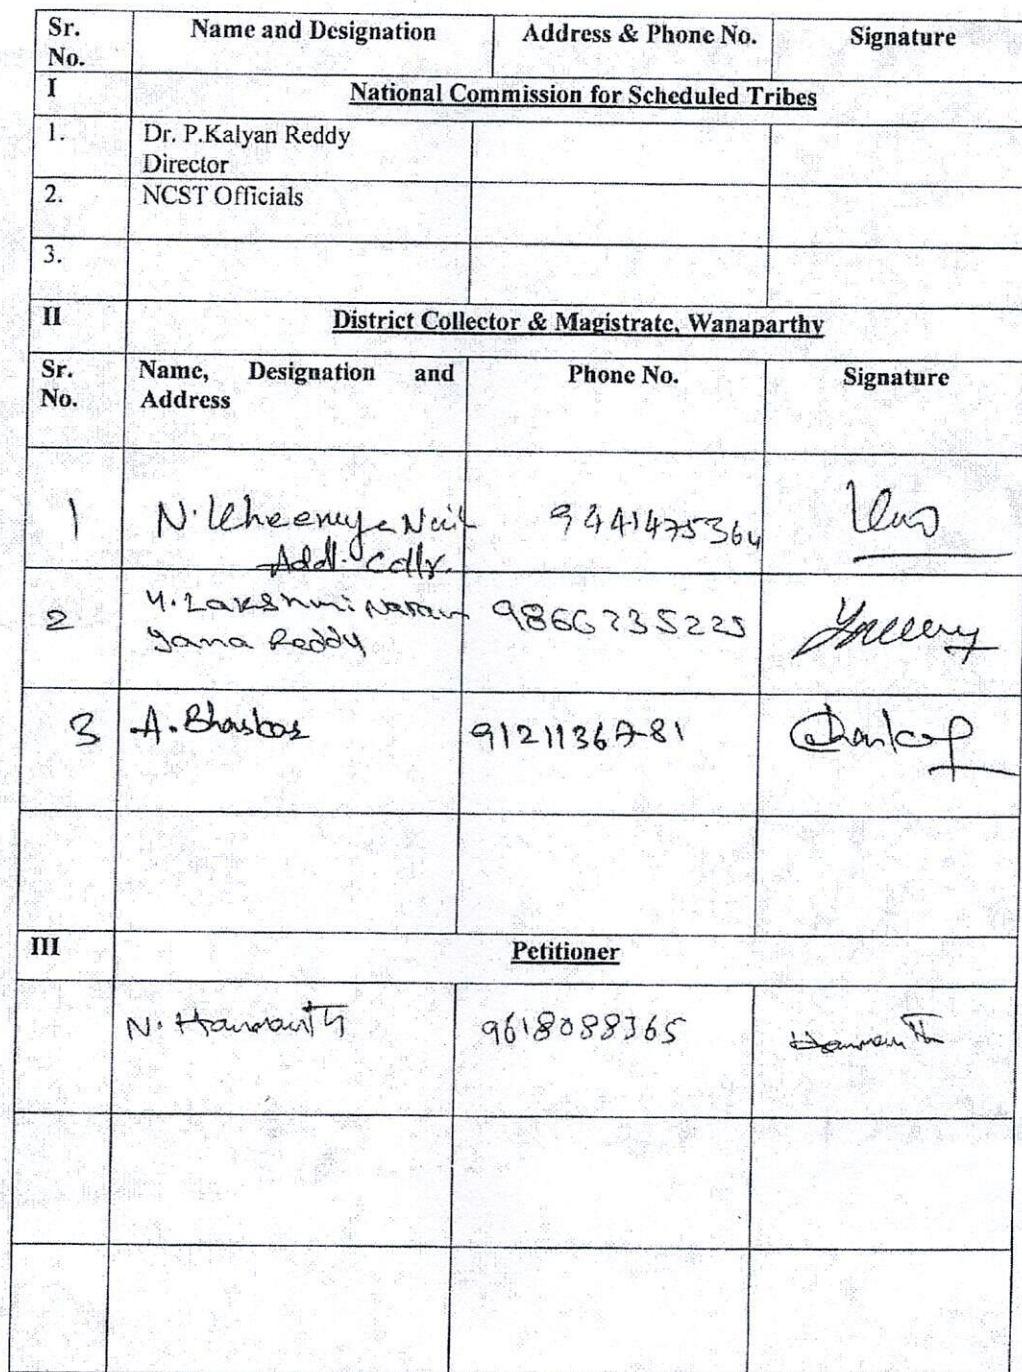 Sr. No. Name and Designation Address & Phone No. Signature
I National Commission for Scheduled Tribes
1. Dr. P.Kalyan Reddy
Director
2. NCST Officials
3.
II District Collector & Magistrate, Wanaparthy
Sr. No. Name, Designation and Address Phone No. Signature
1 N. Kheemya Naik 9441475364
Addl. Collr.
2 Y. Lakshmi Narayana Reddy 9866235225
3 A. Bhaskar
III Petitioner
N. Hanmanth 9618088365 Hanmanth